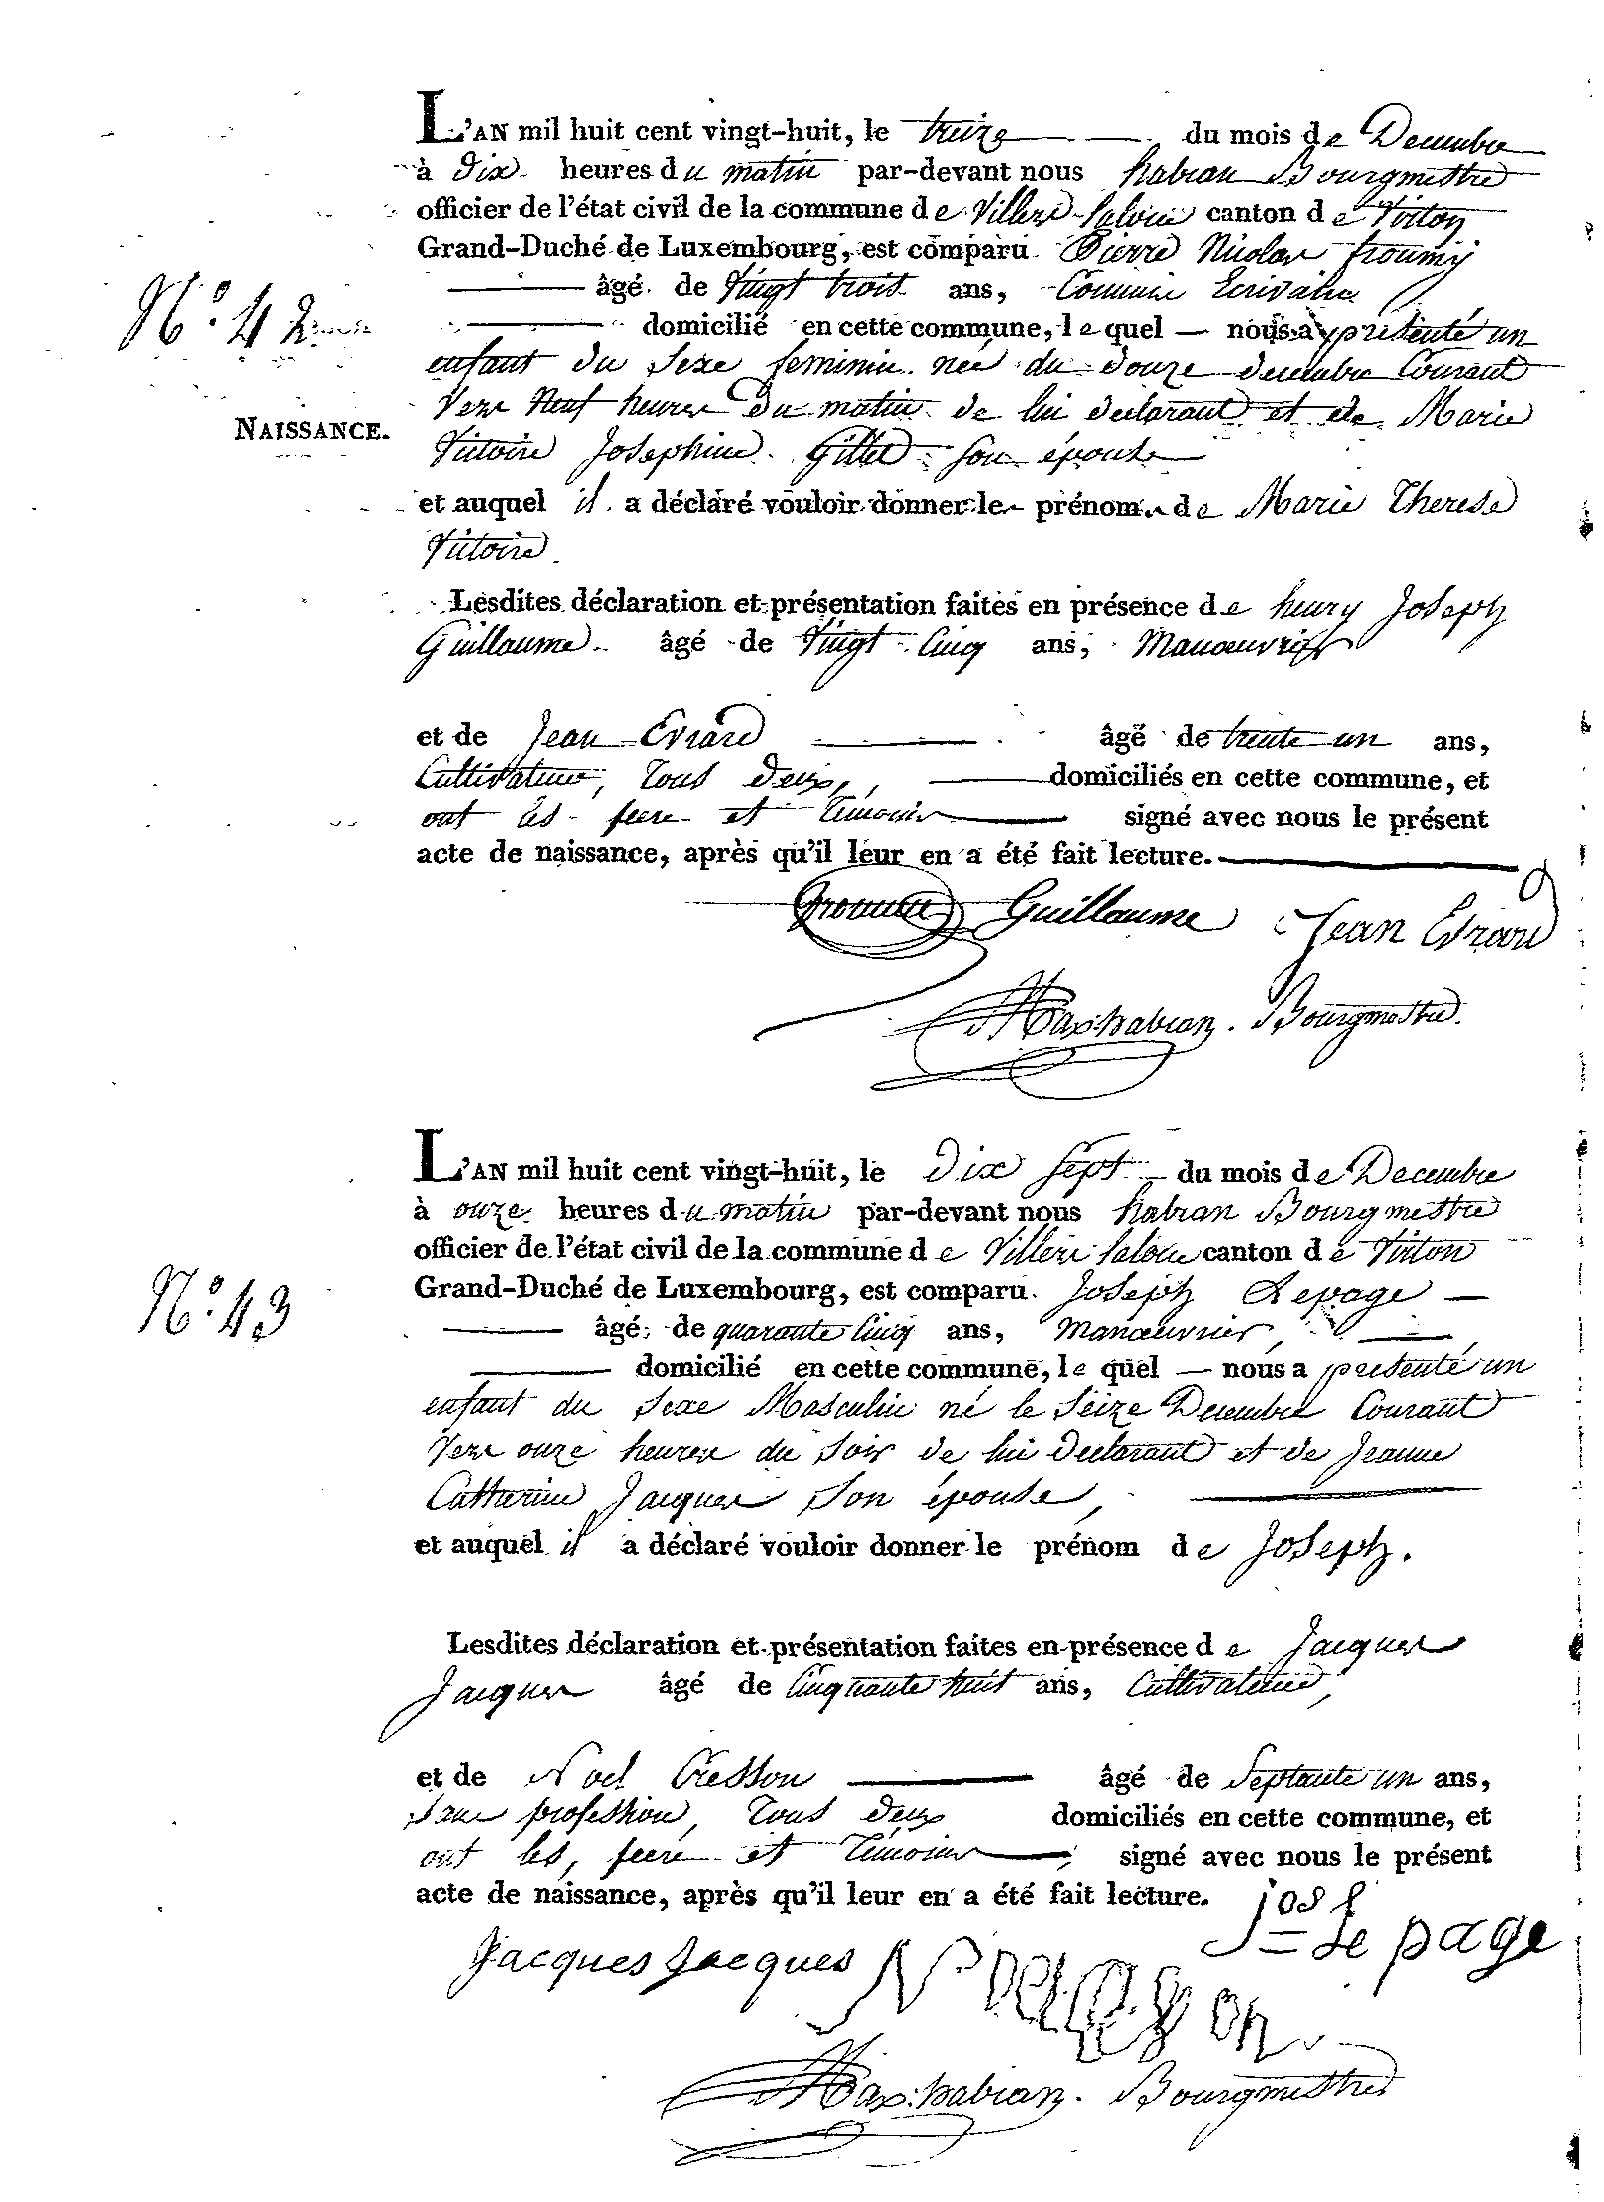 L'AN mil huit cent vingt-huit, le treize du mois de Decembre
à dix heures du matin par-devant nous habran Bourgmestre
officier de l'état civil de la commune de Villers-Laloue canton de Virton
Grand-Duché de Luxembourg, est comparu Pierre Nicolas
âgé de Vingt trois ans, Commis Ecrivain
N.º 42
domicilié en cette commune, le quel — nous a présenté un
enfant du Sexe feminin née du douze decembre Courant
Vers Neuf heures du matin de lui declarant et de Marie
NAISSANCE.
Victoire Josephine Gillet son épouse
et auquel il a déclaré vouloir donner le prénom de Marie Therese
Victoire.
Lesdites déclaration et présentation faites en présence de henry Joseph
Guillaume âgé de Vingt Cinq ans, Manœuvrier
et de Jean Evrard âgé de trente un ans,
Cultivateur, Tous deux, domiciliés en cette commune, et
ont les pere et Témoins signé avec nous le présent
acte de naissance, après qu'il leur en a été fait lecture.
Guillaume Jean Evrard
Max habran. Bourgmestre.
L'AN mil huit cent vingt-huit, le Dix Sept du mois de Decembre
à onze heures du matin par-devant nous habran Bourgmestre
officier de l'état civil de la commune de Villers Laloue canton de Virton
Grand-Duché de Luxembourg, est comparu Joseph Lepage —
N.º 43
âgé de quarante Cinq ans, Manœuvrier,
domicilié en cette commune, le quel — nous a présenté un
enfant du Sexe Masculin né le Seize Decembre Courant
Vers onze heures du Soir de lui Declarant et de Jeanne
Catharine Jacques Son épouse,
et auquel il a déclaré vouloir donner le prénom de Joseph.
Lesdites déclaration et présentation faites en présence de Jacques
Jacques âgé de Cinquante huit ans, Cultivateur,
et de Noel Cresson âgé de Septante un ans,
Sans profession, Tous deux domiciliés en cette commune, et
ont les, peere et Témoins signé avec nous le présent
acte de naissance, après qu'il leur en a été fait lecture.
Jos le page
Jacques Jacques
Max habran. Bourgmestre